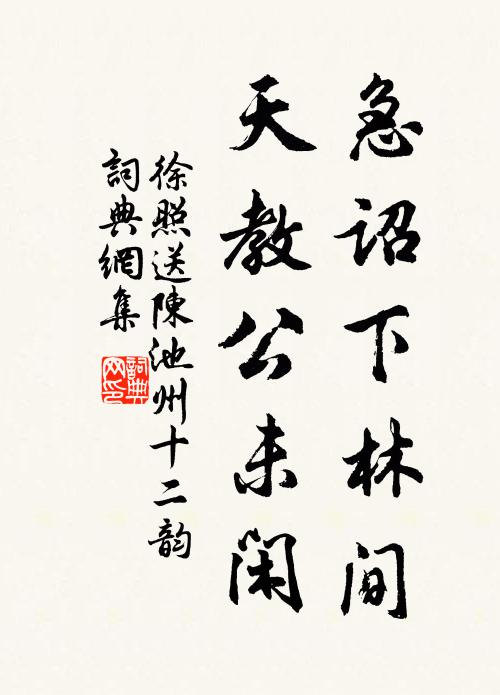 急诏下林间
天教公未闲
徐照送陳池州十二韵
詞典網集
詞典網印